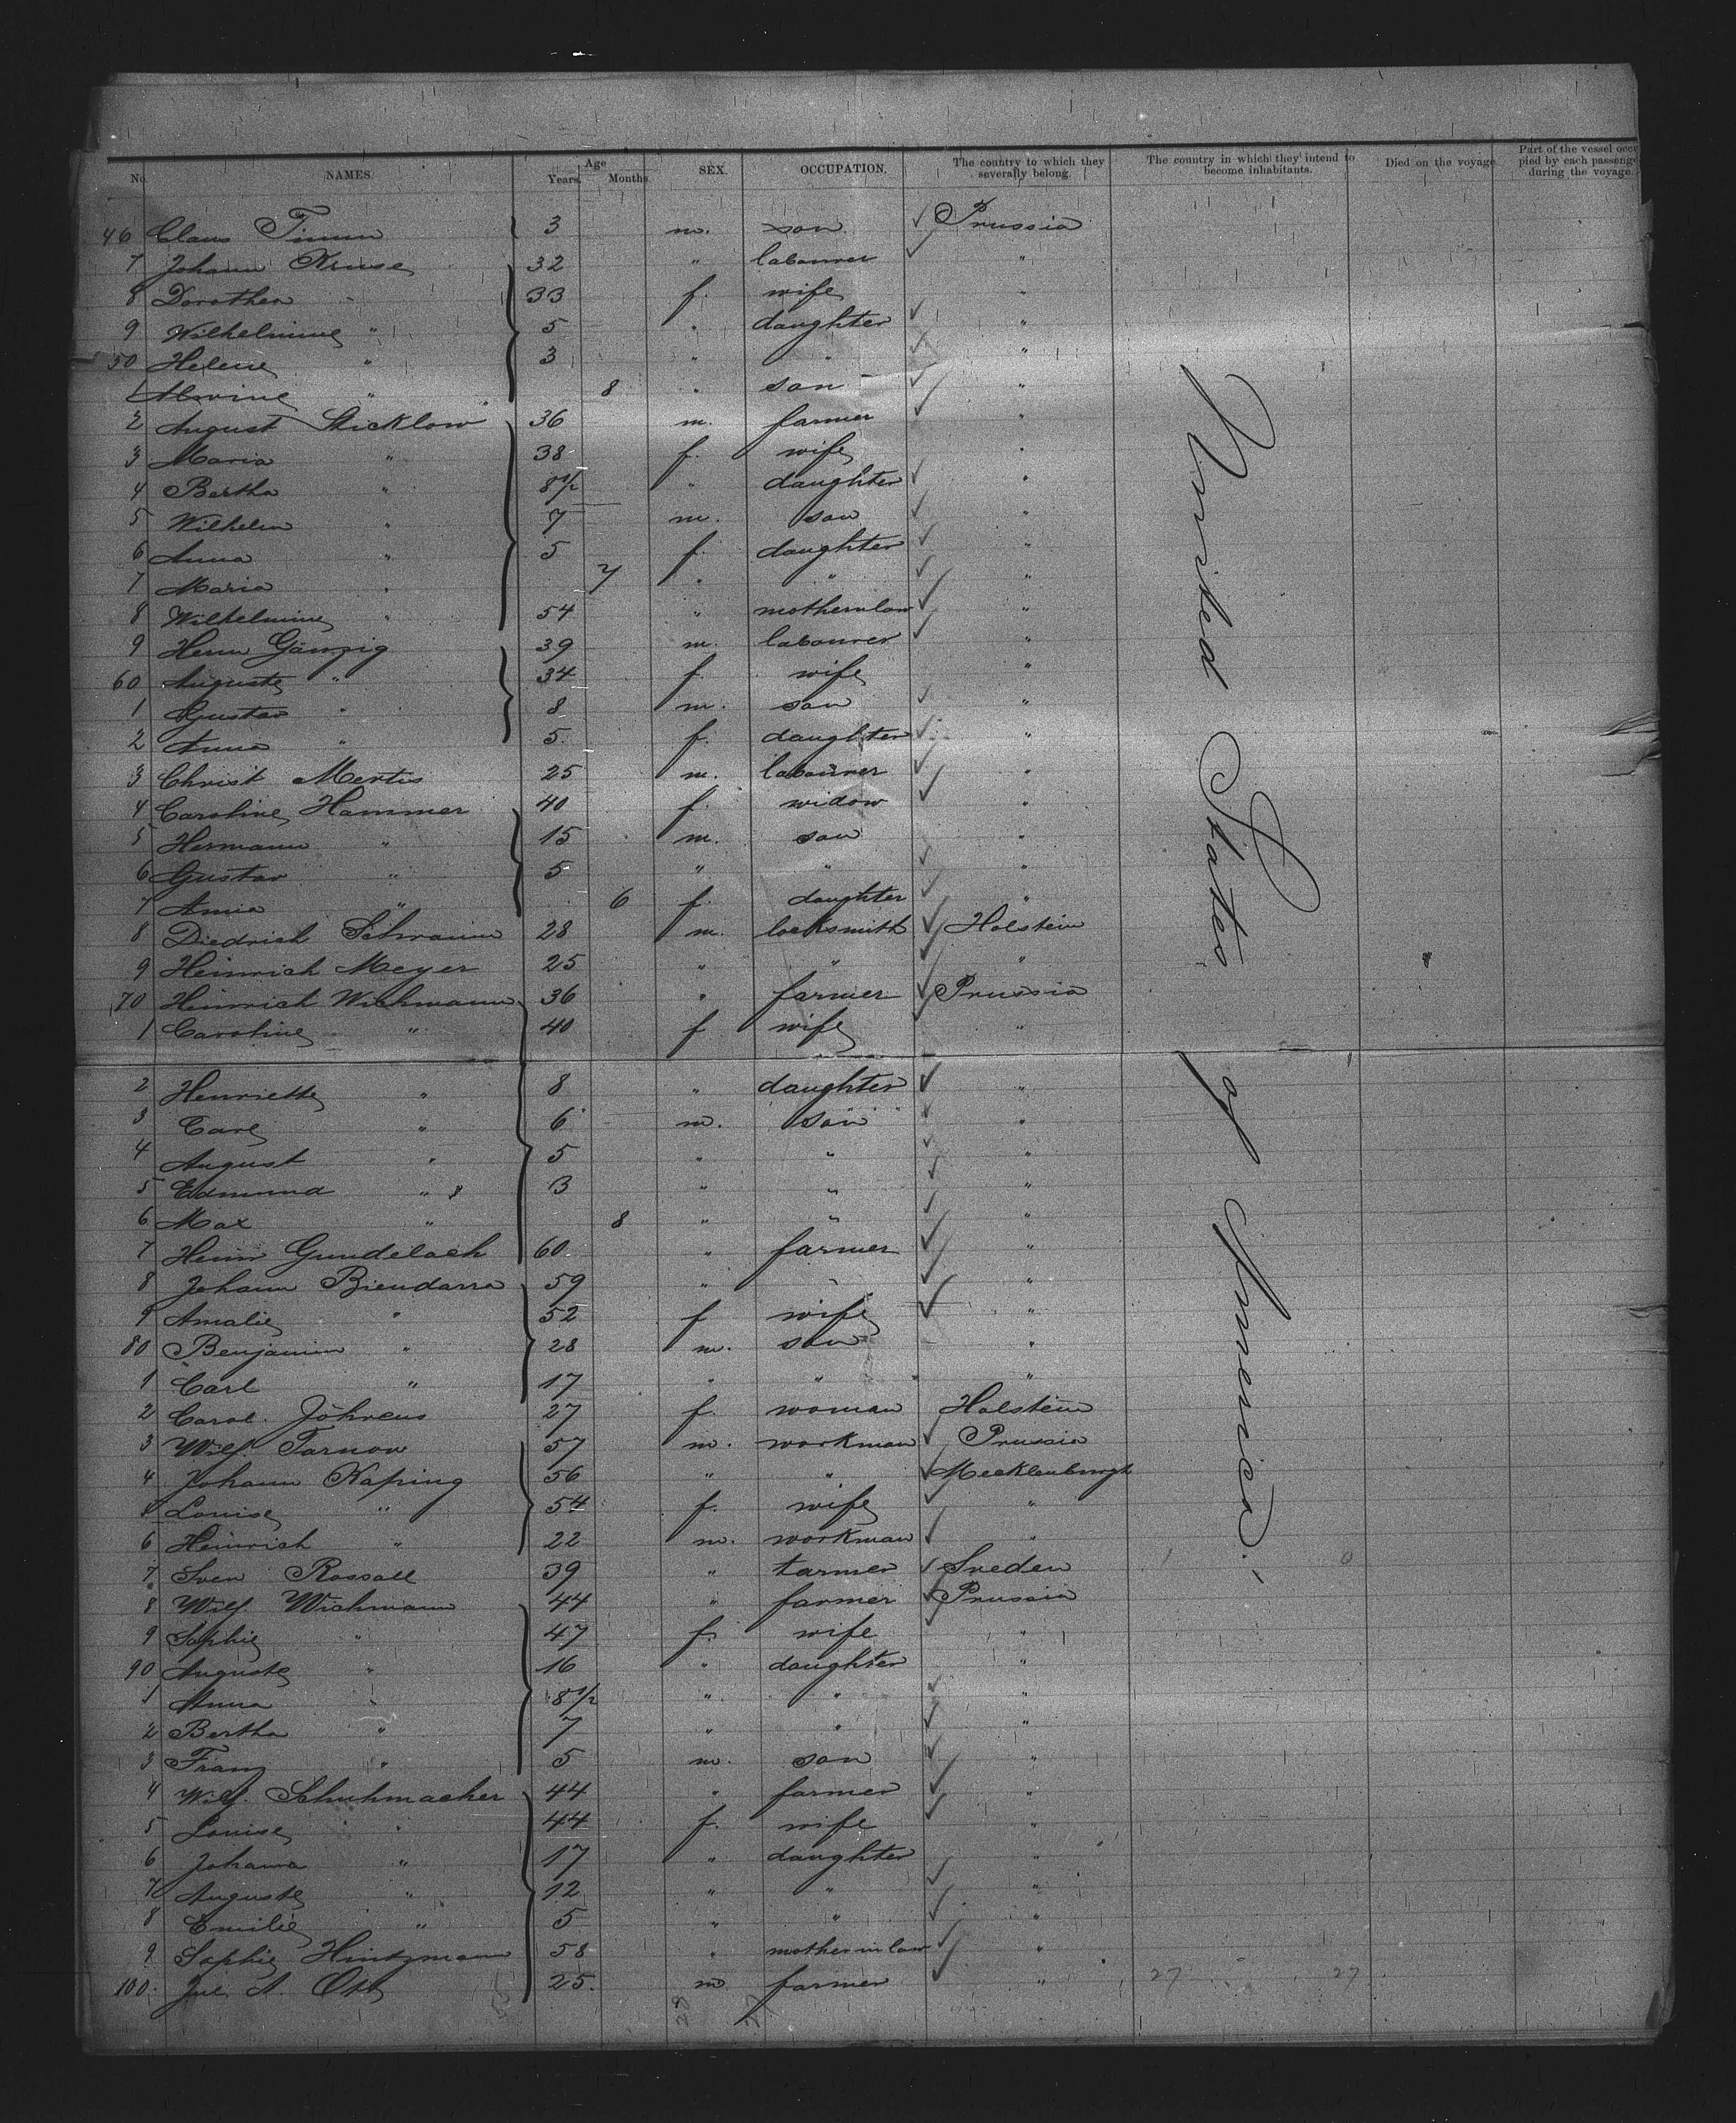 No. NAMES. Age Years. Months. SEX. OCCUPATION. The country to which they severally belong. The country in which they intend to become inhabitants. Died on the voyage. Part of the vessel occu pied by each passeng during the voyage.
46 Claus Timm 3 m. son Prussia
7 Johann Kruse 32 " labourer "
8 Dorothea " 33 f. wife "
9 Wilhelmine " 5 " daughter "
50 Helene " 3 " " "
1 Alwine " 8 " son "
2 August Sticklow 36 m. farmer "
3 Maria " 38 f. wife "
4 Bertha " 8 1/2 " daughter "
5 Wilhelm " 7 m. son "
6 Anna " 5 f. daughter "
7 Maria " 7 " " "
8 Wilhelmine " 54 " motherinlaw "
9 Herm Gänzig 39 m. labourer "
60 Auguste " 34 f. wife "
1 Gustav " 8 m. son "
2 Anna " 5 f. daughter "
3 Christ Mertis 25 m. labourer "
4 Caroline Hammer 40 f. widow "
5 Hermann " 15 m. son "
6 Gustav " 5 " " "
7 " 6 f. daughter "
8 Diedrich 28 m. locksmith Holstein
9 Heinrich Meyer 25 " " "
70 Heinrich Wichmann 36 " farmer Prussia
1 Caroline " 40 f wife "
2 Henriette " 8 " daughter "
3 Carl " 6 m. son "
4 August " 5 " " "
5 Edmund " 8 3 " " "
6 Max " 8 " " "
7 Heinr Gundelach 60 " farmer "
8 Johann Biendarra 59 " " "
9 Amalie " 52 f wife "
80 Benjamin " 28 m. son "
1 Carl " 17 " " "
2 Carol. Jöhrens 27 f. woman Holstein
3 Wilh. Tarnow 57 m. workman Prussia
4 Johann Kaping 56 " " Mecklenburgh
5 Louise " 54 f. wife "
6 Heinrich " 22 m. workman "
7 Sven Rossall 39 " farmer Sveden
8 Wilh. Wichmann 44 " farmer Prussia
9 Sophie " 47 f. wife "
90 Auguste " 16 " daughter "
1 Anna " 8 1/2 " " "
2 Bertha " 7 " " "
3 Franz " 5 m. son "
4 Wilh. Schuhmacher 44 " farmer "
5 Louise " 44 f. wife "
6 Johanna " 17 " daughter "
7 Auguste " 12 " " "
8 Emilie " 5 " " "
9 Sophie Hintzmann 58 " mother in law "
100. Jul. A. Ott 25. m farmer " 27 27
United States of America.